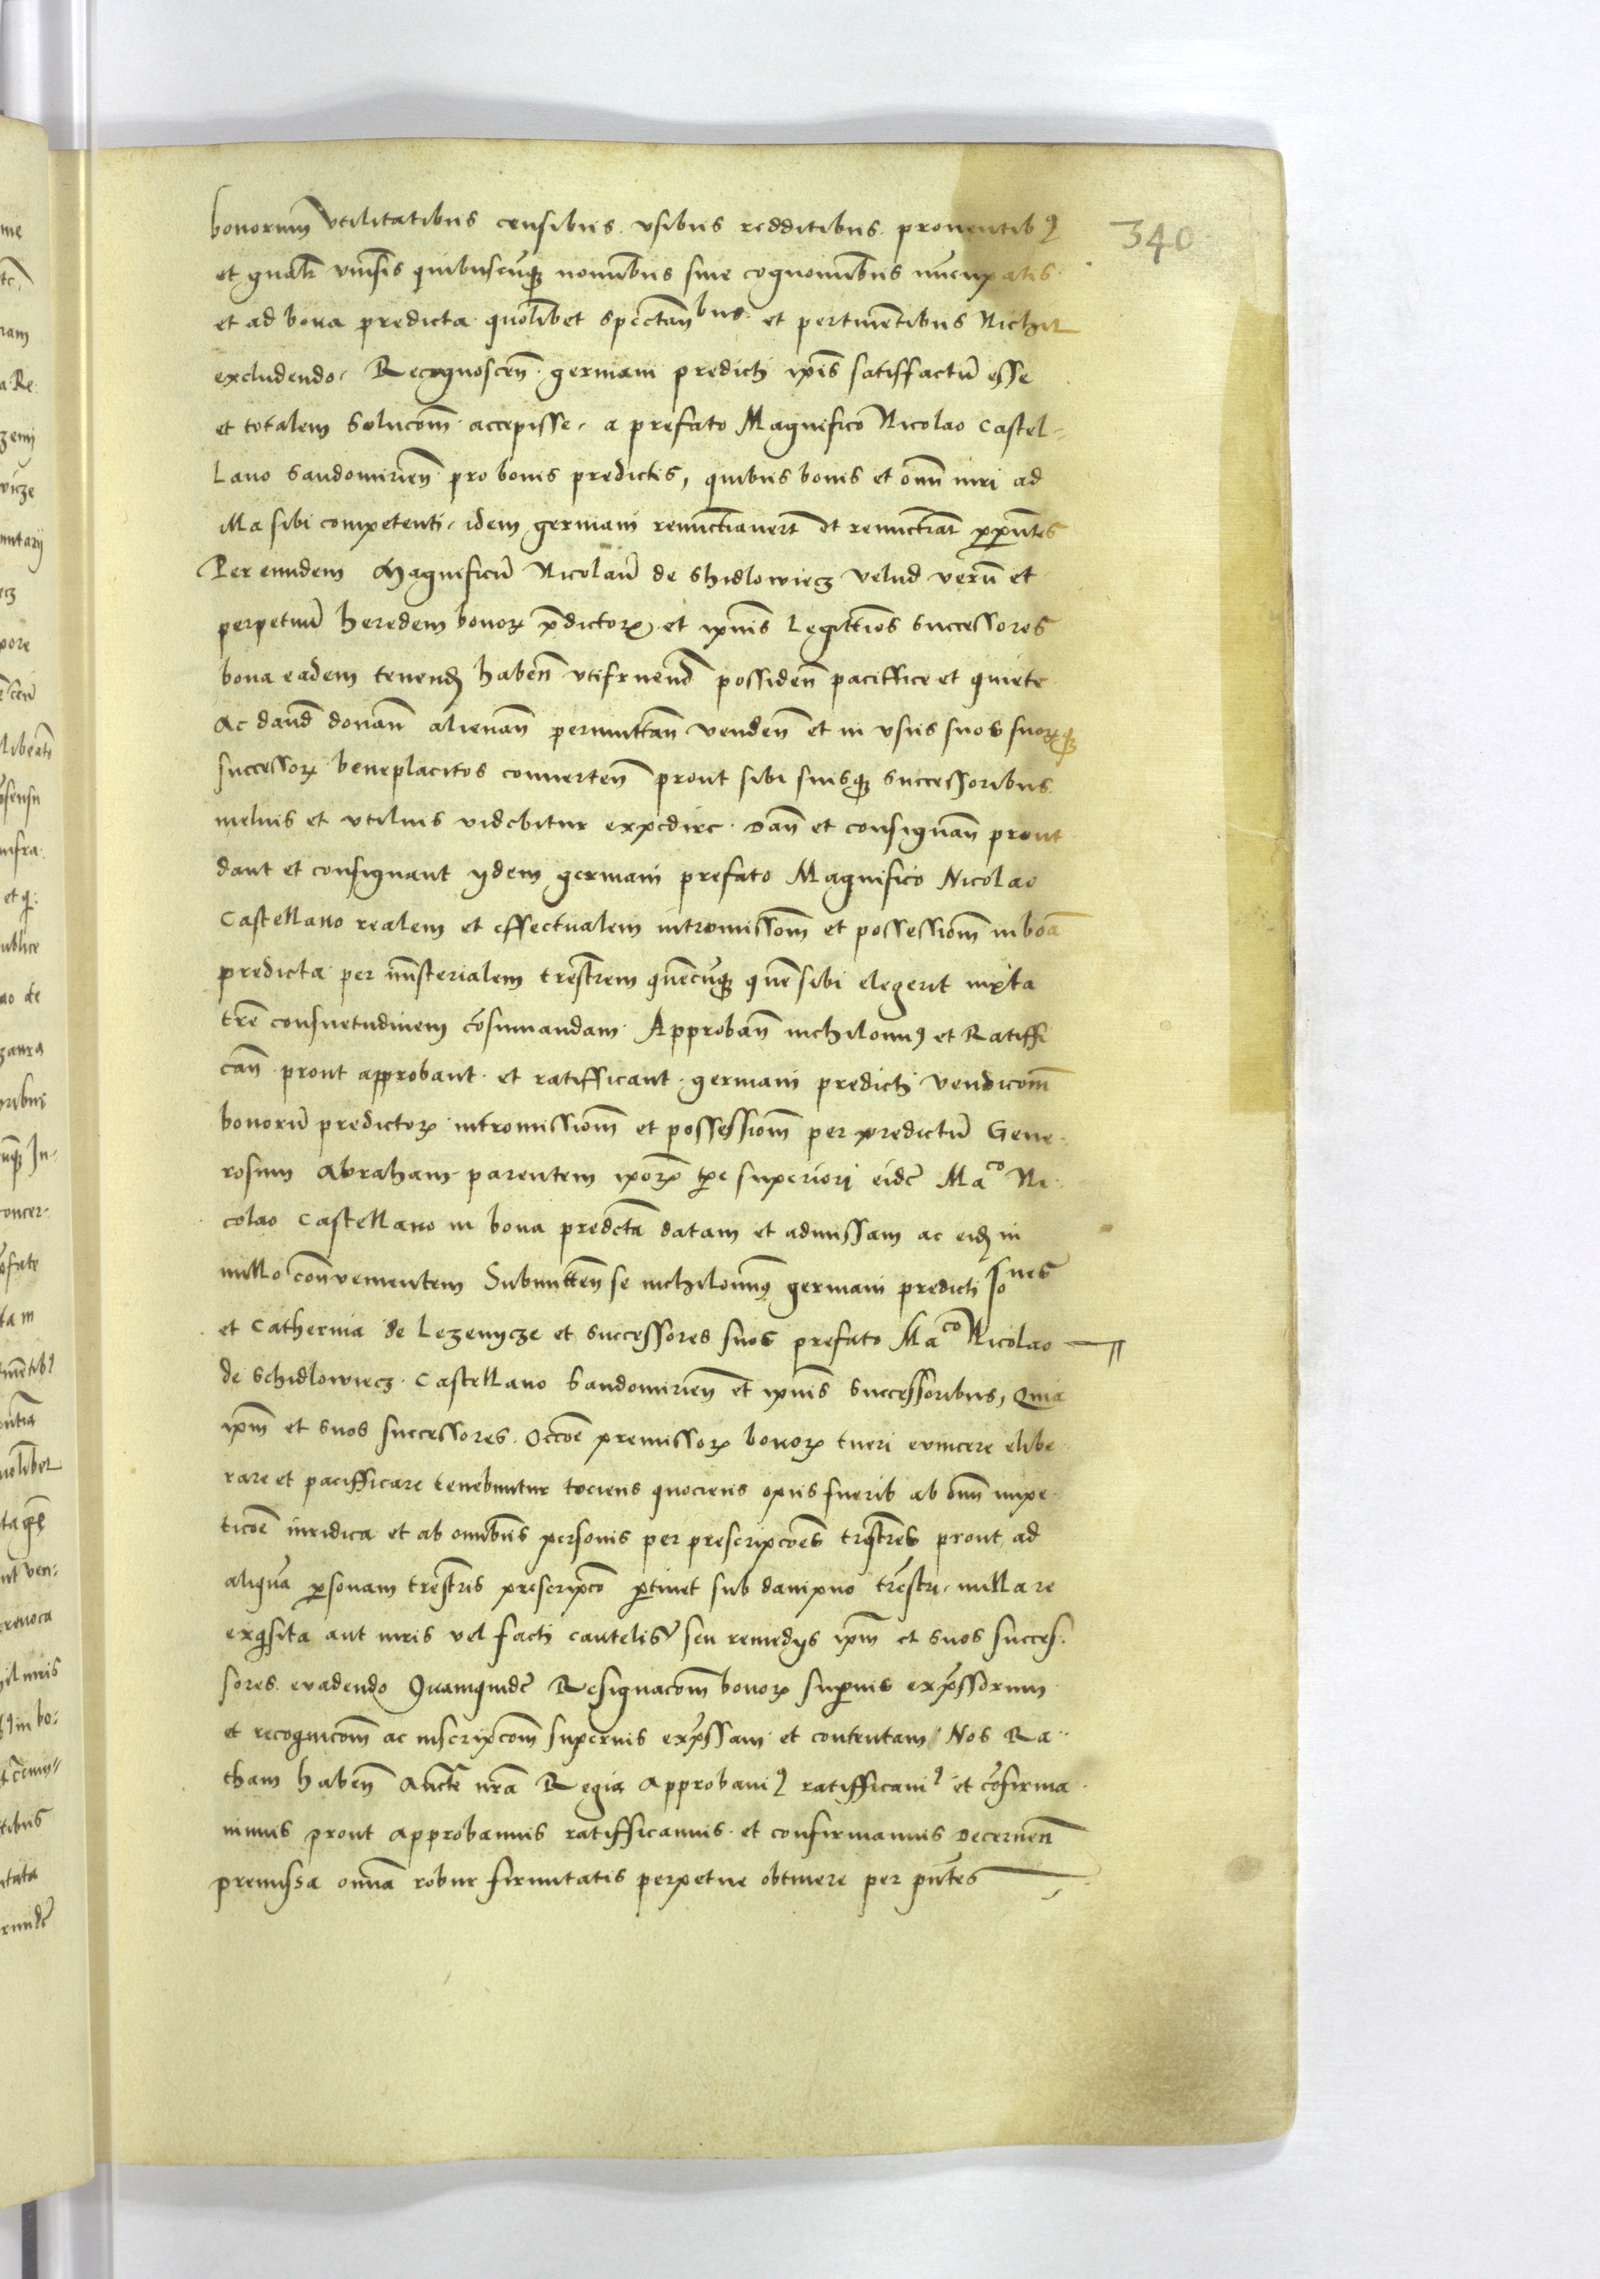 340
bonorum vtilitatibus censibus. vsibus redditibus. prouentibꝯ
et gnalr vniūsis quibuscūqꝫ nominibus siue cognominibus nūcupatis
et ad bona predicta quolibet spectan̄bus. et pertinētibus Nichil
excludendo. Recognoscen̄ germani predicti ip̄is satiffactū esse
et totalem Solucom̄ accepisse. a prefato Magnifico Nicolao Castel-
Lano Sandomirien̄ pro bonis predictis, quibus bonis et om̄i iuri ad
illa sibi competenti. idem germani renuncciauerūt et renuncciāt p p̄ntes
Per eundem Magnificū Nicolaū de Shidlowiecz velud verū et
perpetuū heredem bonorꝫ p̄dictorꝫ. et ip̄ius Legittīos Successores
bona eadem tenend̄ haben̄ vtifruend̄ possiden̄ paciffice et quiete
Ac dand̄ donan̄ alienan̄ permuttan̄ venden̄ et in vsus suos suorꝫqꝫ
successorꝫ beneplacitos conuerten̄ prout sibi suisqꝫ Successoribus
melius et vtilius videbitur expedire. Dan̄ et consignan̄ prout
dant et consignant ydem germani prefato Magnifico Nicolao
Castellano realem et effectualem intromissiom̄ et possessiom̄ in boā
predicta per mīsterialem tr̄estrem quēcūqꝫ quē sibi elegerit iuxta
tr̄e consuetudinem cōsumandam. Approban̄ nichilominꝯ et Ratiffi
can̄ prout approbant. et ratifficant. germani predicti vendicom̄
bonorū predictorꝫ intromissiom̄ et possessiom̄ per predictū Gene-
rosum Abraham parentem ip̄orꝫ tp̄e superiori eidē Maco Ni-
colao Castellano in bona predcta datam et admissam ac eid̄ in
nullo conuenientem Submitten̄ se nichilominꝯ germani predicti Jones
et Catherina de Lezenycze et successores suos prefato Maco Nicolao
de Schidlowiecz. Castellano Sandomirien̄ et ip̄ius Successoribus, Quia
ip̄m et suos successores. occōe premissorꝫ bonorꝫ tueri euincere elibe
rare et pacifficare tenebuntur tociens quociens opus fuerit ab om̄i impe
ticōe iuridica et ab omībus personis per prescripcōes tr̄estres prout ad
aliquā p̄sonam tr̄estris prescripcō p̄tinet sub dampno tr̄estri. nulla re
exq̄sita aut iuris vel facti cautelis seu remedijs ip̄m et suos succes-
sores euadendo Quamquidē Resignacom̄ bonorꝫ suꝑius exp̄ssorum
et recognicom̄ ac inscripcom̄ superius exp̄ssam et contentam Nos Ra-
tham haben̄ Aucte nr̄a Regia Approbauiꝯ ratifficauiꝯ et cōfirma
uimus prout approbamus ratifficamus et confirmamus Decernen̄
premissa omīa robur firmitatis perpetue obtinere per p̄ntes